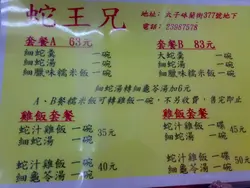 蛇王兄
地址:大子咪蘭街377號地下
電話:23987578
套餐A 63元
套餐B 83元
細蛇羹 一碗
大蛇羹 一碗
細蛇湯 一碗
細蛇湯 一碗
細臘味糯米飯 一碗
細臘味糯米飯 一碗
細蛇湯轉細龜苓湯加6元
A、B餐糯米飯可轉雞飯一碗,不另收費,售完即止
雞飯套餐
雞飯套餐
蛇汁雞飯 一碗 35元
細蛇湯 一碗
蛇汁雞飯 一碟 45元
細蛇湯 一碗
蛇汁雞飯 一碗 40元
細龜苓湯 一碗
蛇汁雞飯 一碟 50元
細龜苓湯 一碗